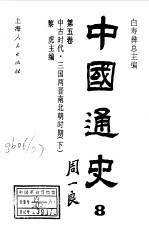 白寿彝总主编
中國通史
8
第五卷
中古时代·三国两晋南北朝时期(下)
黎虎主编
周一良
上海人民出版社